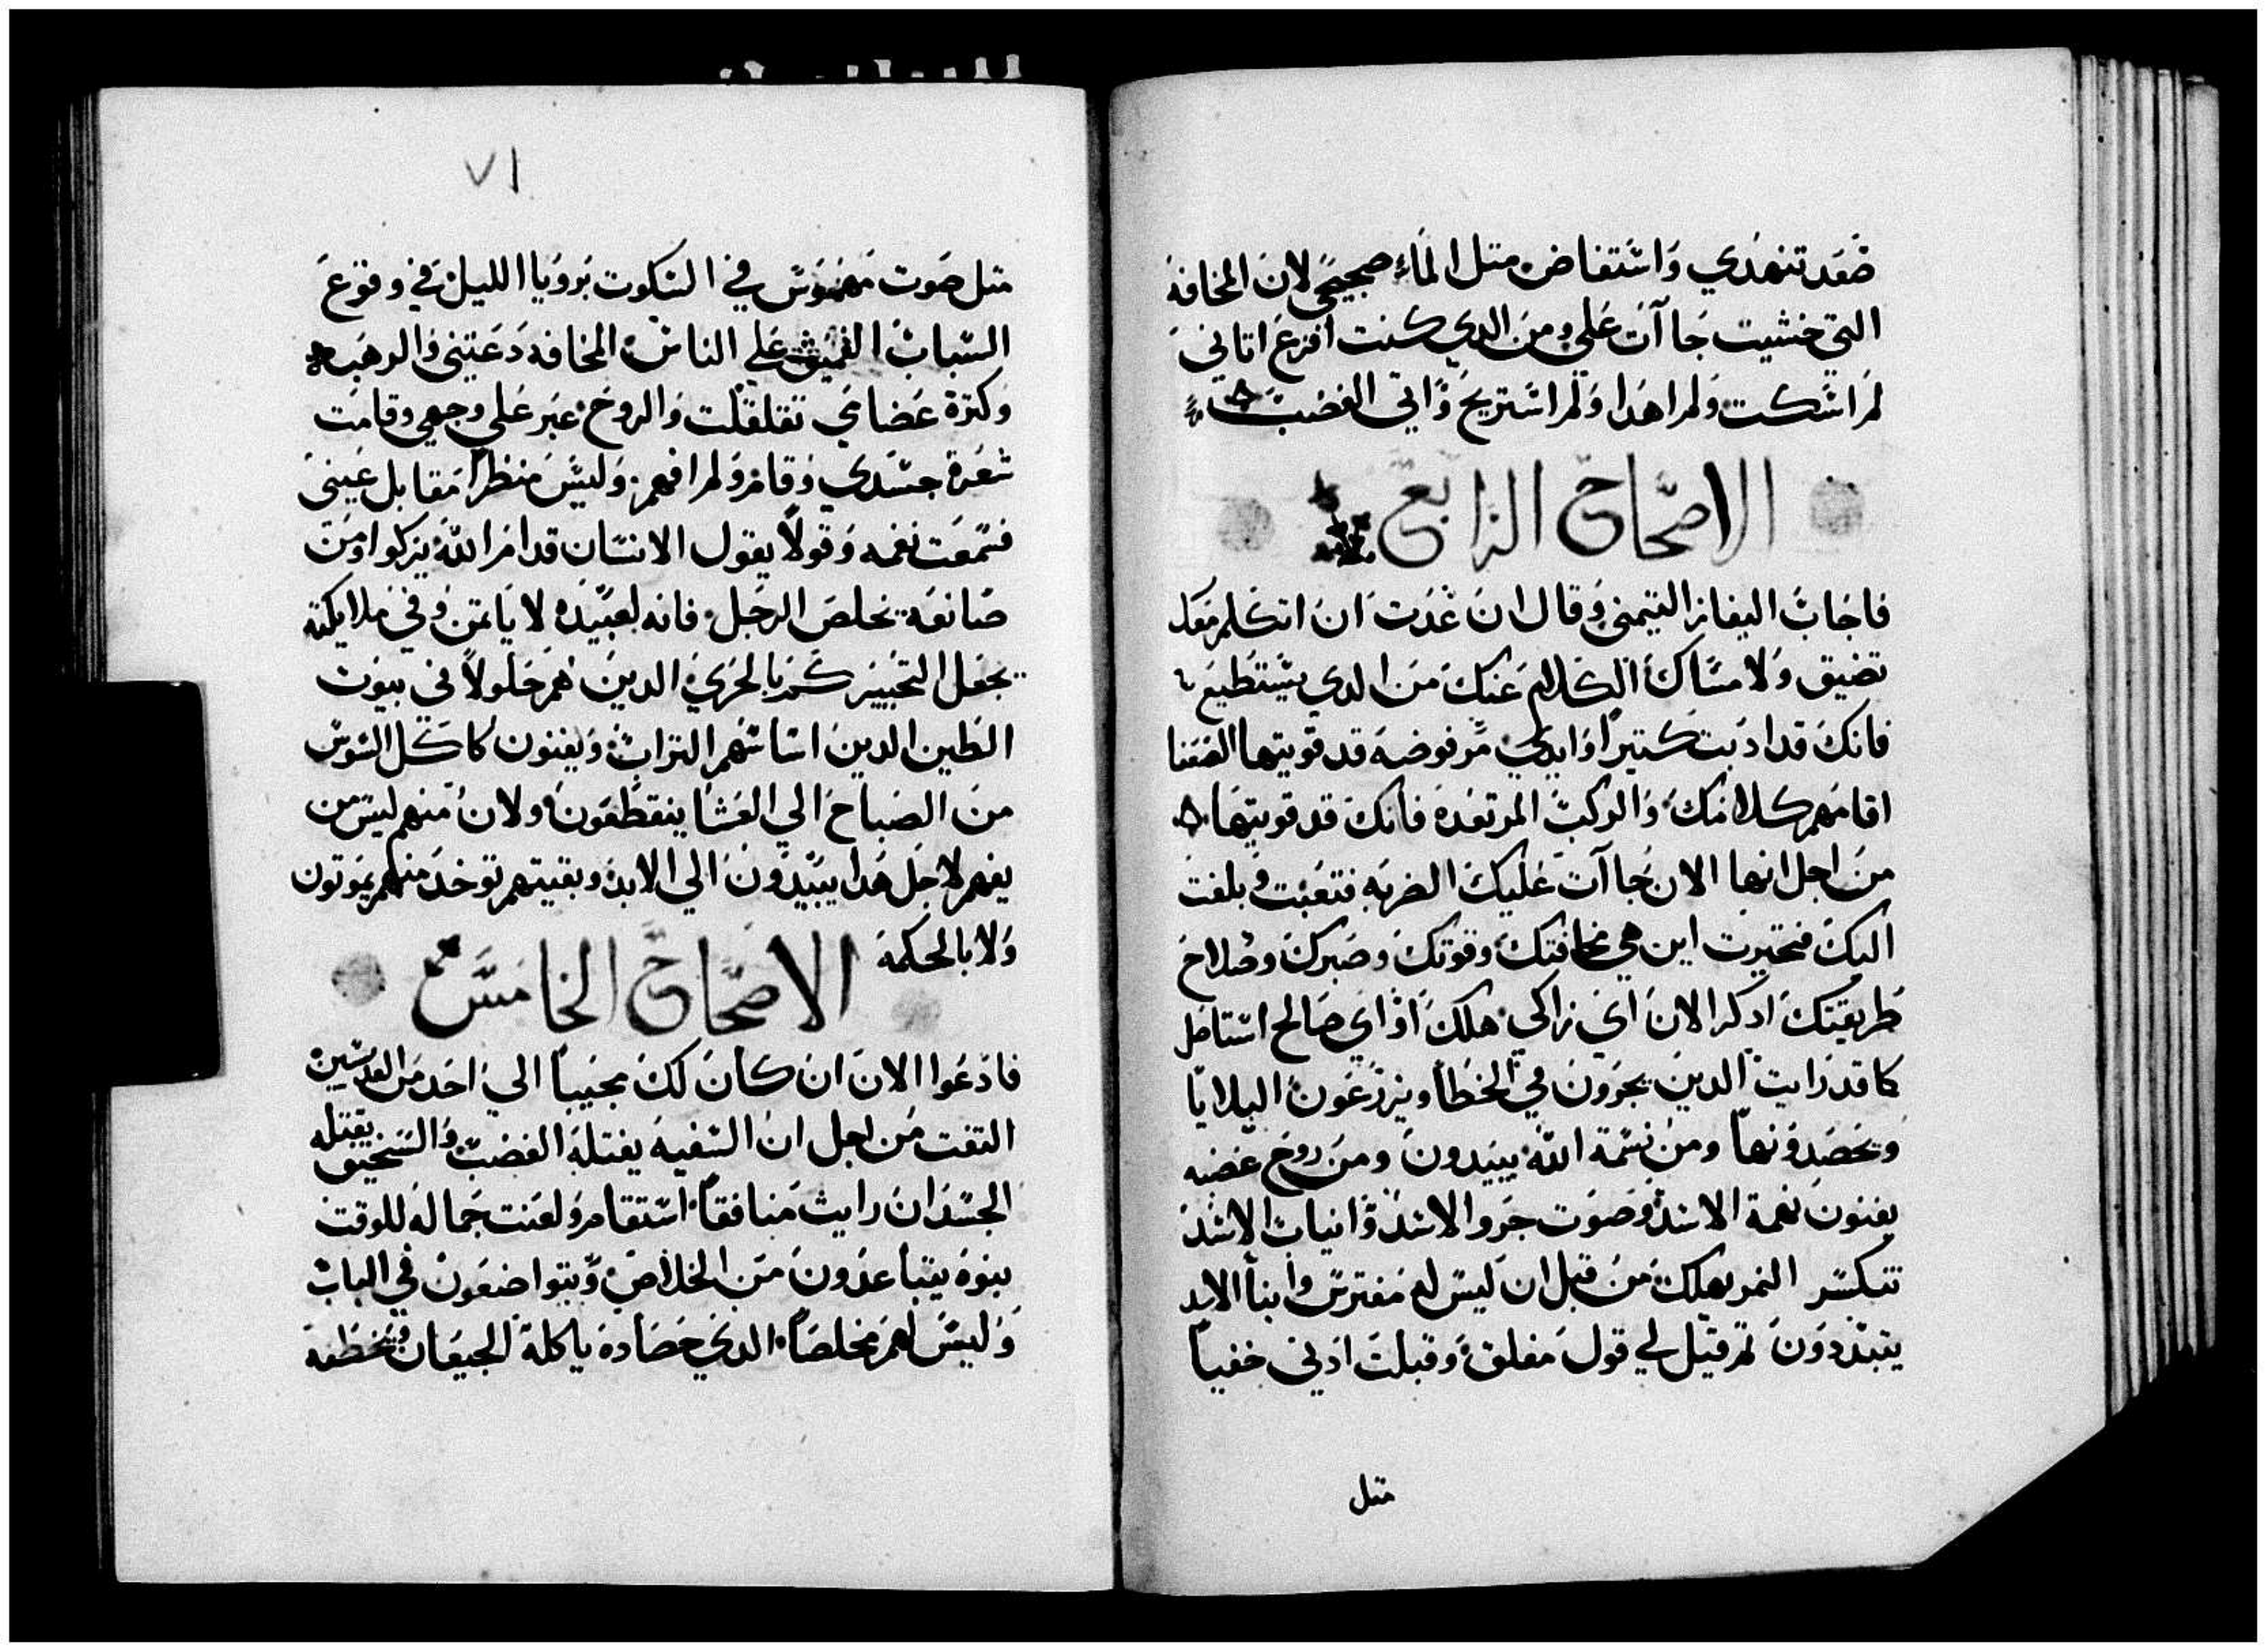 صَعَد تنهدي وَاسَتفاض متل المَاء صجيجي لان المخافه
التي خشيت جاآت عَلي ومن الدي كنت افزع اتاني
لم اسَكت ولم اهدا وَلم استريح وَاتي الغضبَ
الاصحَاح الرابع
فاجَابَ اليفاز التيمني وَقال ان عَدَت ان اتكلم مَعَك
تضيق وَلامسَاك الكلام عَنك مَن الدي يسَتطيع
فانكَ قد ادبت كتيراً وَايدي مرفوضه قد قويتها الضعَفا
اقامَهم كلامَك وَالركبَ المرتعَدة فانك قد قويتهَا
من اجل انها الان جاآت عَليك الضربه فتعَبت وَبلغت
اليك فتحيرت اين هي مخافتك وقوتك وصَبرك وصلاح
طريقتك ادكر الان اي زاكي هلك اوَ اي صَالح استاصل
كما قد رَايت الدين يجرَون في الخطا ويزرعَون البلايا
وَيحصَدونها ومن نسَمة الله يبيدون ومن روح غضبه
يفنون نعمة الاسَد وصَوت جرو الاسَد وَانياب الاسَد
تنكسَر النمر يهلك مَن قبل ان ليسَ له مَفترسَ وابنا الاسد
يتبددوَن تم قيل لي قول مَغلق وَقبلت ادني خفياً
متل
٧١
متل صَوت مَهموسَ في السَكوت برَويا الليل في وقوع
السَبات العَميق عَلي الناس المخافه دَعَتني وَالرهبَه
وَكترة عَضامي تقلقلت وَالروح عبر عَلي وجهي وقامَت
شعَرة جسَدي وَقام وَلم افهم وَليسَ منظراً مَقابل عَيني
فسَمعَت نغمه وَقولاً يقول الانسَان قدام الله يزكوا اومَن
صَانعَه يخلصَ الرجل فانه لعَبيده لا ياتمن وَفي ملايكته
يجعَل التحيير كم بالحَري الدين هم حَلولاً في بيوت
الطين الدين اسَاسَهم الترابَ وَيفنون كما كل السَوسَ
من الصَباح الي العَشا ينقطعَون ولان مَنهم ليسَ من
يفهم لاجل هَدا يبيدون الي الابد وبقيتهم توخد منهم يَموتون
وَلا بالحكمة
الاصَحاح الخامَسَ
فادعَوا الان ان كان لك مجيباً الي احَد مَن القديسَين
التفت مَن اجل ان السَفيه يقتله الغضبَ وَالسَخيف يقتله
الحسَد ان رايت مَنافقاً اسَتقام وَلعَنت جَماله للوقت
بنوه يتباعدَون مَن الخلاصَ وَيتواضعَون في الباب
وَليسَ لهم مَخلصَاً الدي حَصَاده ياكله الجيعَان وَتخطفه